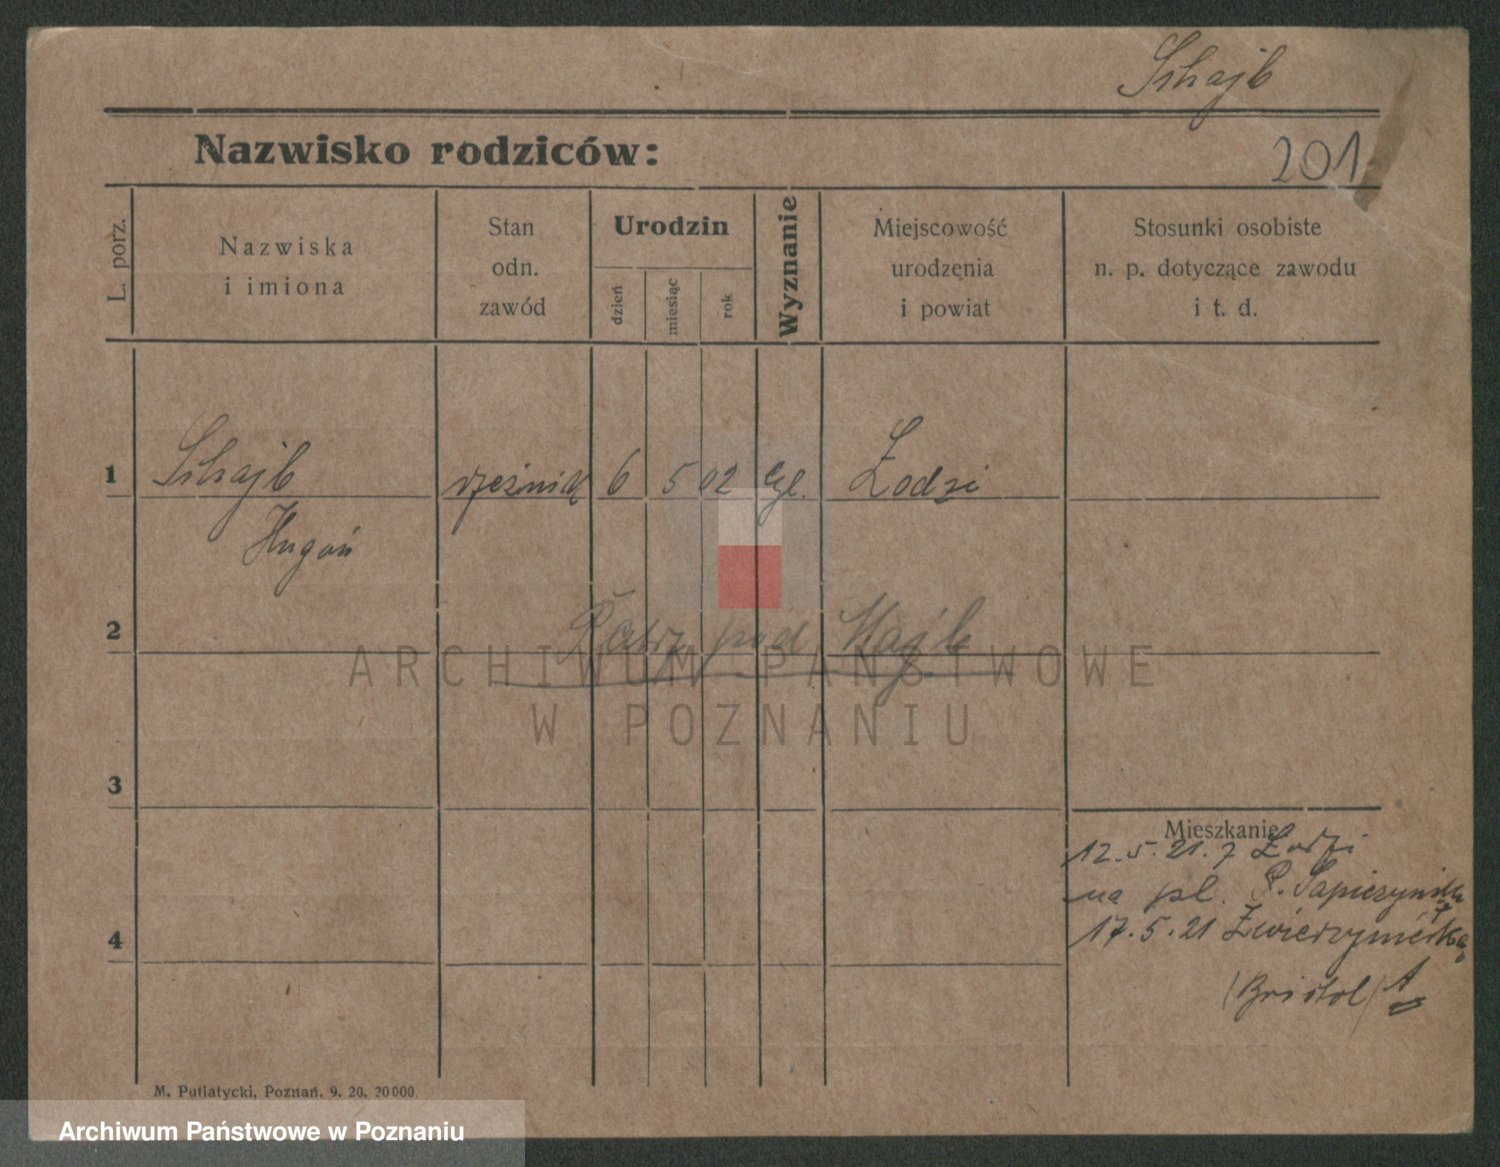 Schajb
Nazwisko rodziców:
201
L. porz.
Nazwiska
i imiona
Stan
odn.
zawód
Urodzin
dzień
miesiąc
rok
Wyznanie
Miejscowość
urodzenia
i powiat
Stosunki osobiste
n. p. dotyczące zawodu
i t. d.
1 Schajb rzeźnick 6 5 02 Łodzi
Hugon
2 Patrz pod
3
4
Mieszkanie
12.5.21. z Łodzi
na pl. Sapieżyński
17.5.21 Zwierzyniecka
(Bristol)
M. Putiatycki, Poznań, 9. 20. 20000.
ARCHIWUM PAŃSTWOWE
W POZNANIU
Archiwum Państwowe w Poznaniu